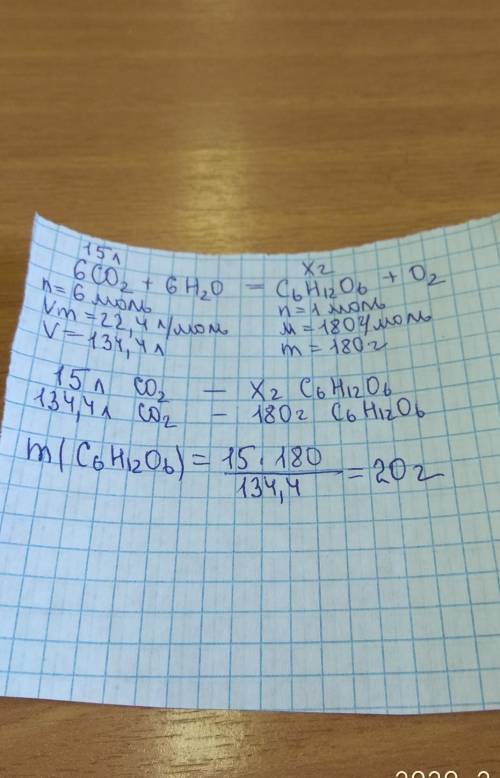 15л xг
6CO₂ + 6H₂O = C₆H₁₂O₆ + O₂
n = 6 моль n = 1 моль
Vm = 22,4 л/моль M = 180 г/моль
V = 134,4 л m = 180 г
15 л CO₂ — xг C₆H₁₂O₆
134,4 л CO₂ — 180г C₆H₁₂O₆
m(C₆H₁₂O₆) = 15 · 180 / 134,4 = 20 г